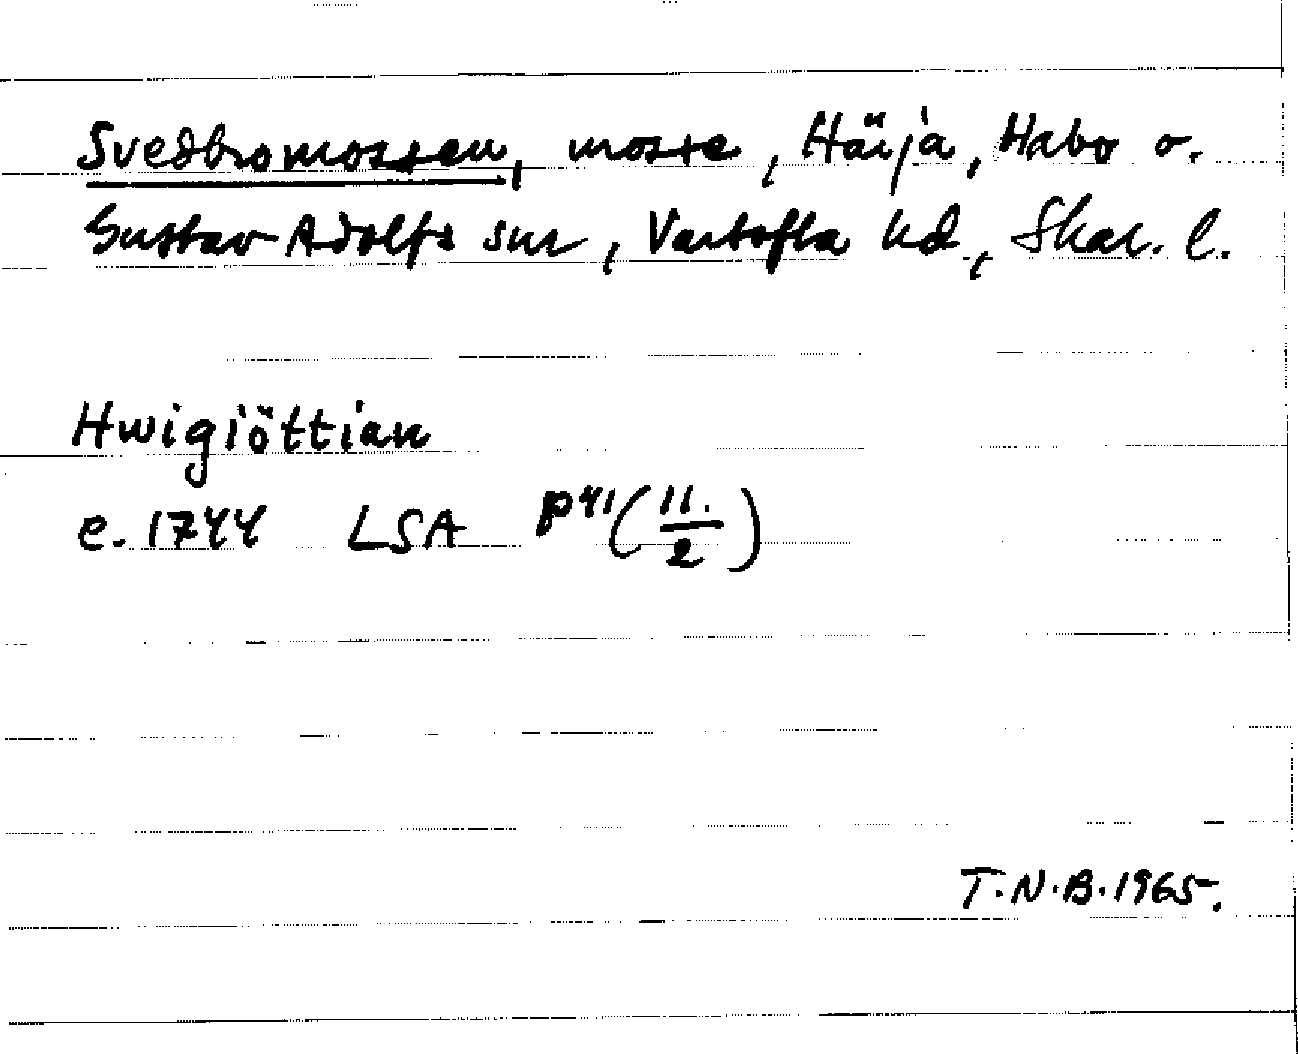 Svedbromossen, mosse, Härja, Habo o.
Gustav Adolfs snr, Vartofta hd, Skar. l.
Hwigiöttian
e. 1744 LSA P41(11./2)
T.N.B.1965.